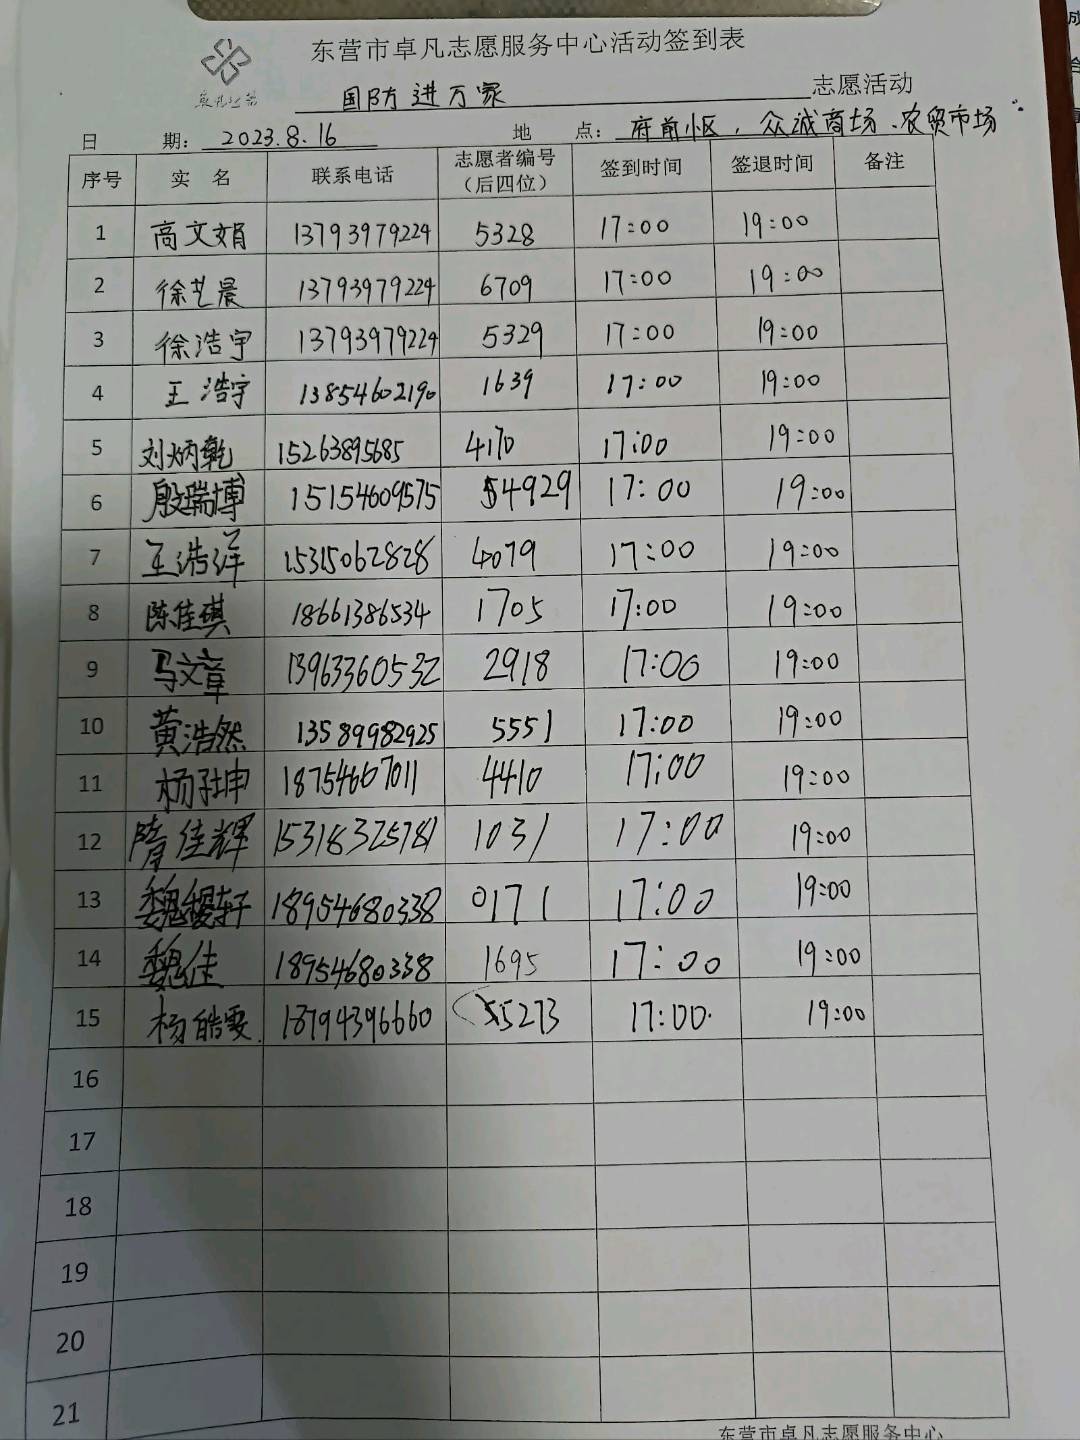 东营市卓凡志愿服务中心活动签到表
国防进万家 志愿活动
日 期: 2023.8.16 地 点: 府前小区, 众诚商场、农贸市场
序号 实 名 联系电话 志愿者编号（后四位） 签到时间 签退时间 备注
1 高文娟 13793979224 5328 17:00 19:00
2 徐艺晨 13793979224 6709 17:00 19:00
3 徐浩宇 13793979224 5329 17:00 19:00
4 王浩宇 13854602190 1639 17:00 19:00
5 刘炳乾 15263895685 4170 17:00 19:00
6 殷瑞博 15154609575 54929 17:00 19:00
7 王浩洋 15315062828 4079 17:00 19:00
8 陈佳琪 18661386534 1705 17:00 19:00
9 马文章 13963360532 2918 17:00 19:00
10 黄浩然 13589982925 5551 17:00 19:00
11 杨子坤 18754667011 4410 17:00 19:00
12 隋佳辉 15318325781 1031 17:00 19:00
13 魏稷轩 18954680338 0171 17:00 19:00
14 魏佳 18954680338 1695 17:00 19:00
15 杨皓雯 18794396660 5273 17:00 19:00
16
17
18
19
20
21
东营市卓凡志愿服务中心